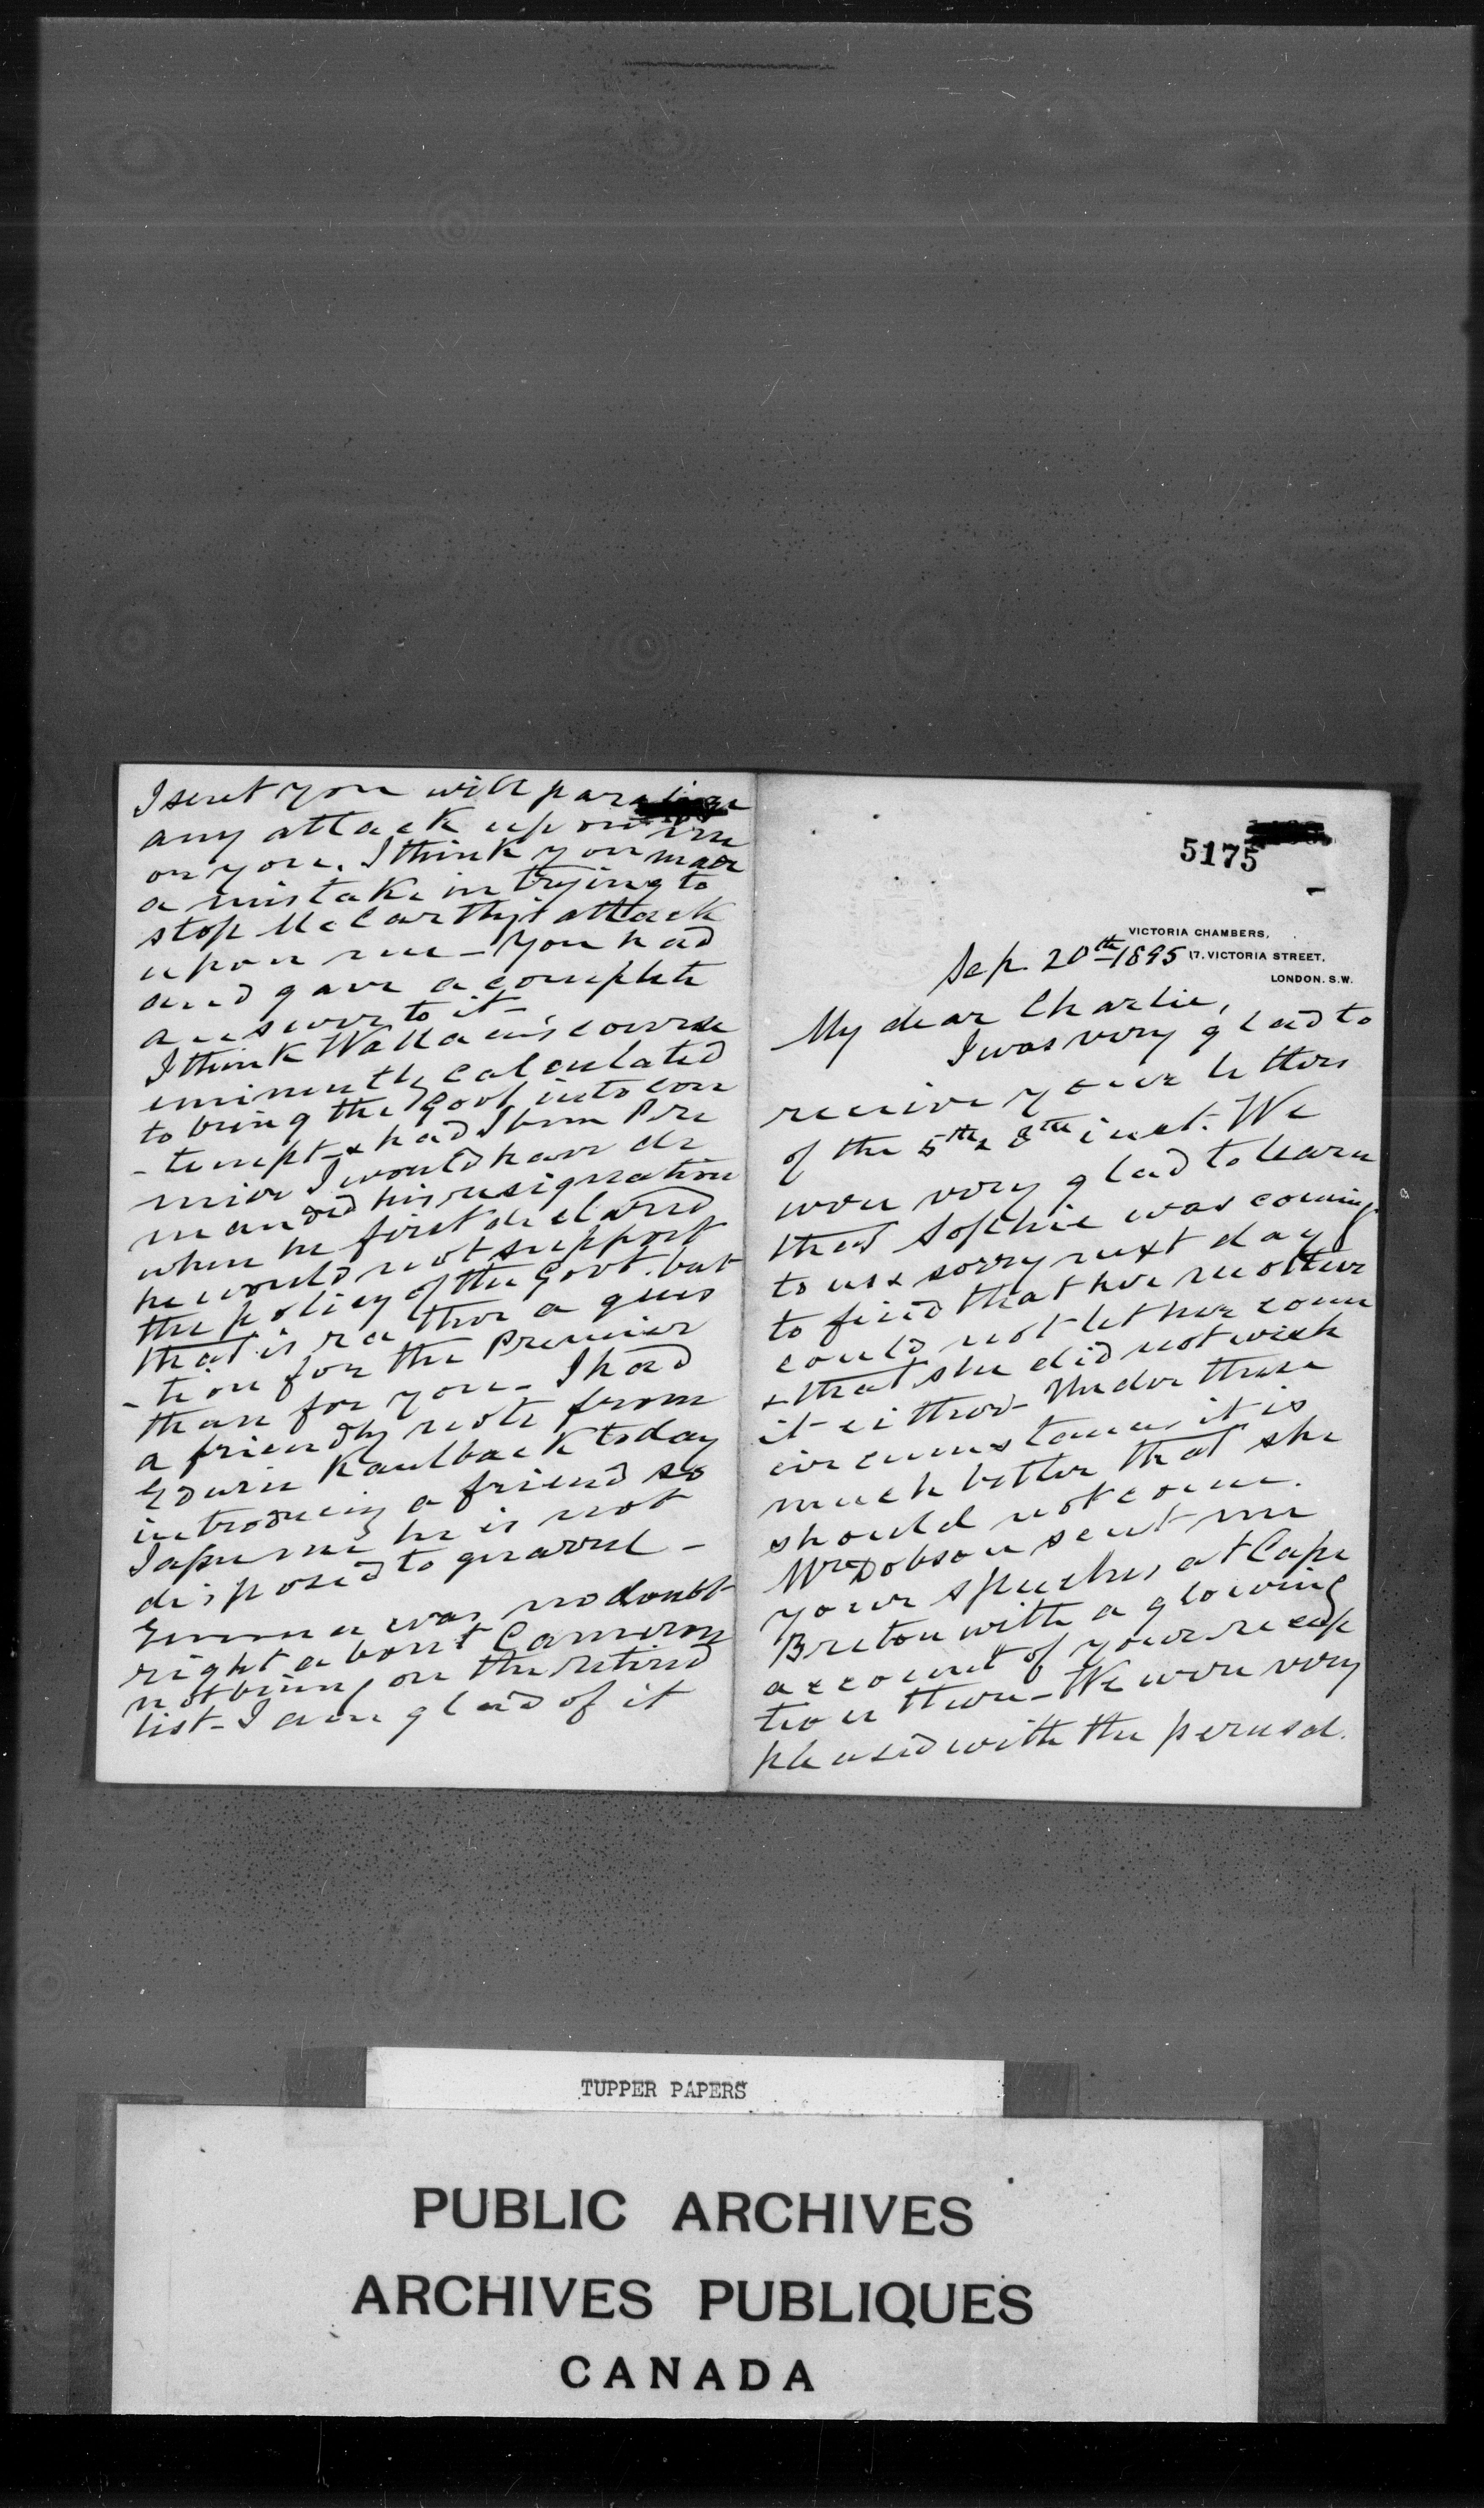 I sent you will paralize
any attack upon me
on you. I think you made
a mistake in trying to
stop McCarthy's attack
upon me - You had
and gave a complete
answer to it -
I think Wallace's course
eminently calculated
to bring the Govt into con
- tempt - & had I been Pre
mier I would have de
manded his resignation
when he first declared
he would not support
the policy of the Govt. but
that is rather a ques
- tion for the Premier
than for you - I had
a friendly note from
Edwin Kaulback today
introducing a friend so
I assume he is not
disposed to quarrel -
Emma was no doubt
right about Cameron
not being on the retired
list - I am glad of it
5175
VICTORIA CHAMBERS,
17. VICTORIA STREET,
LONDON. S.W.
Sep. 20th 1895
My dear Charlie,
I was very glad to
receive your letters
of the 5th & 8th inst. We
were very glad to learn
that Sophie was coming
to us & sorry next day
to find that her mother
could not let her come
& that she did not wish
it either - Under these
circumstances it is
much better that she
should not come.
Mrs Dobson sent me
your speeches at Cape
Breton with a glowing
account of your recep
tion there - We were very
pleased with the perusal.
TUPPER PAPERS
PUBLIC ARCHIVES
ARCHIVES PUBLIQUES
CANADA